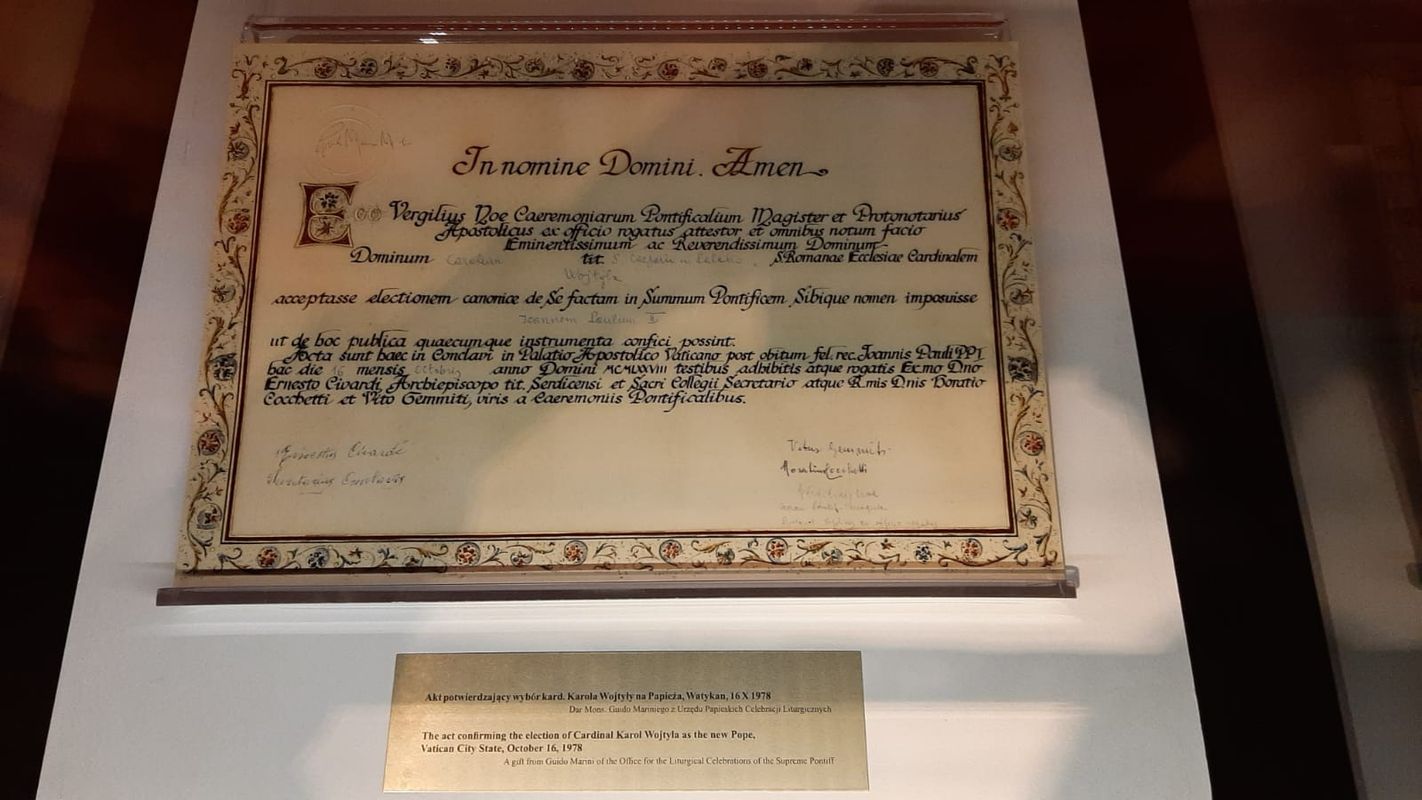 In nomine Domini. Amen
Ego Vergilius Noe Caeremoniarum Pontificalium Magister et Protonotarius
Apostolicus ex officio rogatus attestor et omnibus notum facio
Eminentissimum ac Reverendissimum Dominum
Dominum Carolum tit. S. S.Romanae Ecclesiae Cardinalem
Wojtyła
acceptasse electionem canonice de Se factam in Summum Pontificem Sibique nomen imposuisse
Joannem Paulum II
ut de hoc publica quaecumque instrumenta confici possint.
Acta sunt haec in Conclavi in Palatio Apostolico Vaticano post obitum fel. rec. Joannis Pauli PP.I
hac die 16 mensis Octobris anno Domini MCMLXXVIII testibus adhibitis atque rogatis Exc.mo Dno
Ernesto Civardi, Archiepiscopo tit. Serdicensi et Sacri Collegii Secretario atque R.mis Dnis Horatio
Cocchetti et Vito Gemmiti, viris a Caeremoniis Pontificalibus.
Ernestus Civardi
Vitus Gemmiti
Akt potwierdzający wybór kard. Karola Wojtyły na Papieża, Watykan, 16 X 1978
Dar Mons. Guido Mariniego z Urzędu Papieskich Celebracji Liturgicznych
The act confirming the election of Cardinal Karol Wojtyla as the new Pope,
Vatican City State, October 16, 1978
A gift from Guido Marini of the Office for the Liturgical Celebrations of the Supreme Pontiff